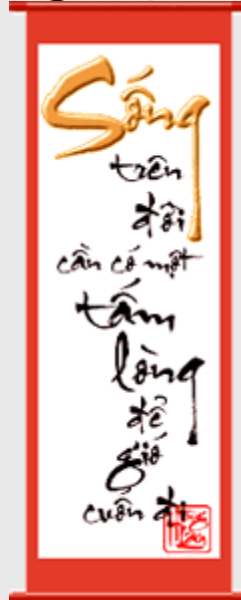 Sống
trên
đời
cần có một
tấm
lòng
để
gió
cuốn đi